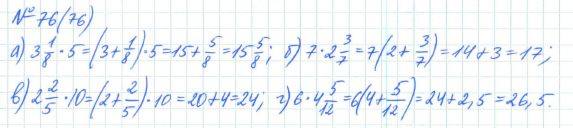 № 76(76)
а) 3 1/8 · 5 = (3 + 1/8) · 5 = 15 + 5/8 = 15 5/8; б) 7 · 2 3/7 = 7(2 + 3/7) = 14 + 3 = 17;
в) 2 2/5 · 10 = (2 + 2/5) · 10 = 20 + 4 = 24; г) 6 · 4 5/12 = 6(4 + 5/12) = 24 + 2,5 = 26,5.